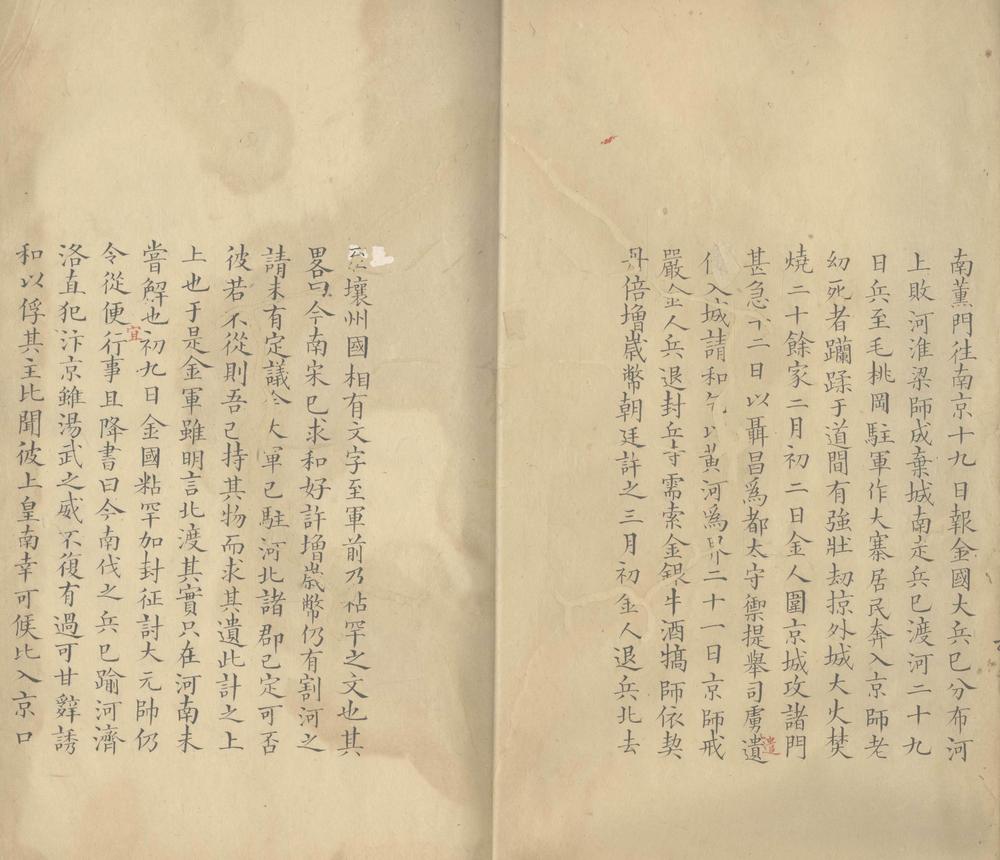 南薰門往南京十九日報金國大兵已分布河
上敗河淮梁師成棄城南走兵已渡河二十九
日兵至毛桃岡駐軍作大寨居民奔入京師老
幼死者躪蹂于道間有強壯刼掠外城大火焚
燒二十餘家二月初二日金人圍京城攻諸門
甚急十二日以聶昌爲都太守禦提舉司虜遺
遣
入城請和乞以黃河爲界二十一日京師戒
嚴金人兵退封丘寺需索金銀牛酒犒師依契
丹倍增歲幣朝廷許之三月初金人退兵北去
壤州國相有文字至軍前乃粘罕之文也其
畧曰今南宋已求和好許增歲幣仍有割河之
請未有定議今大軍已駐河北諸郡已定可否
彼若不從則吾已持其物而求其遺此計之上
上也于是金軍雖明言北渡其實只在河南未
嘗解也初九日金國粘罕加封征討大元帥仍
宜
令從便行事且降書曰今南伐之兵已踰河濟
洛直犯汴京雖湯武之威不復有過可甘辭誘
和以俘其主比聞彼上皇南幸可候比入京口